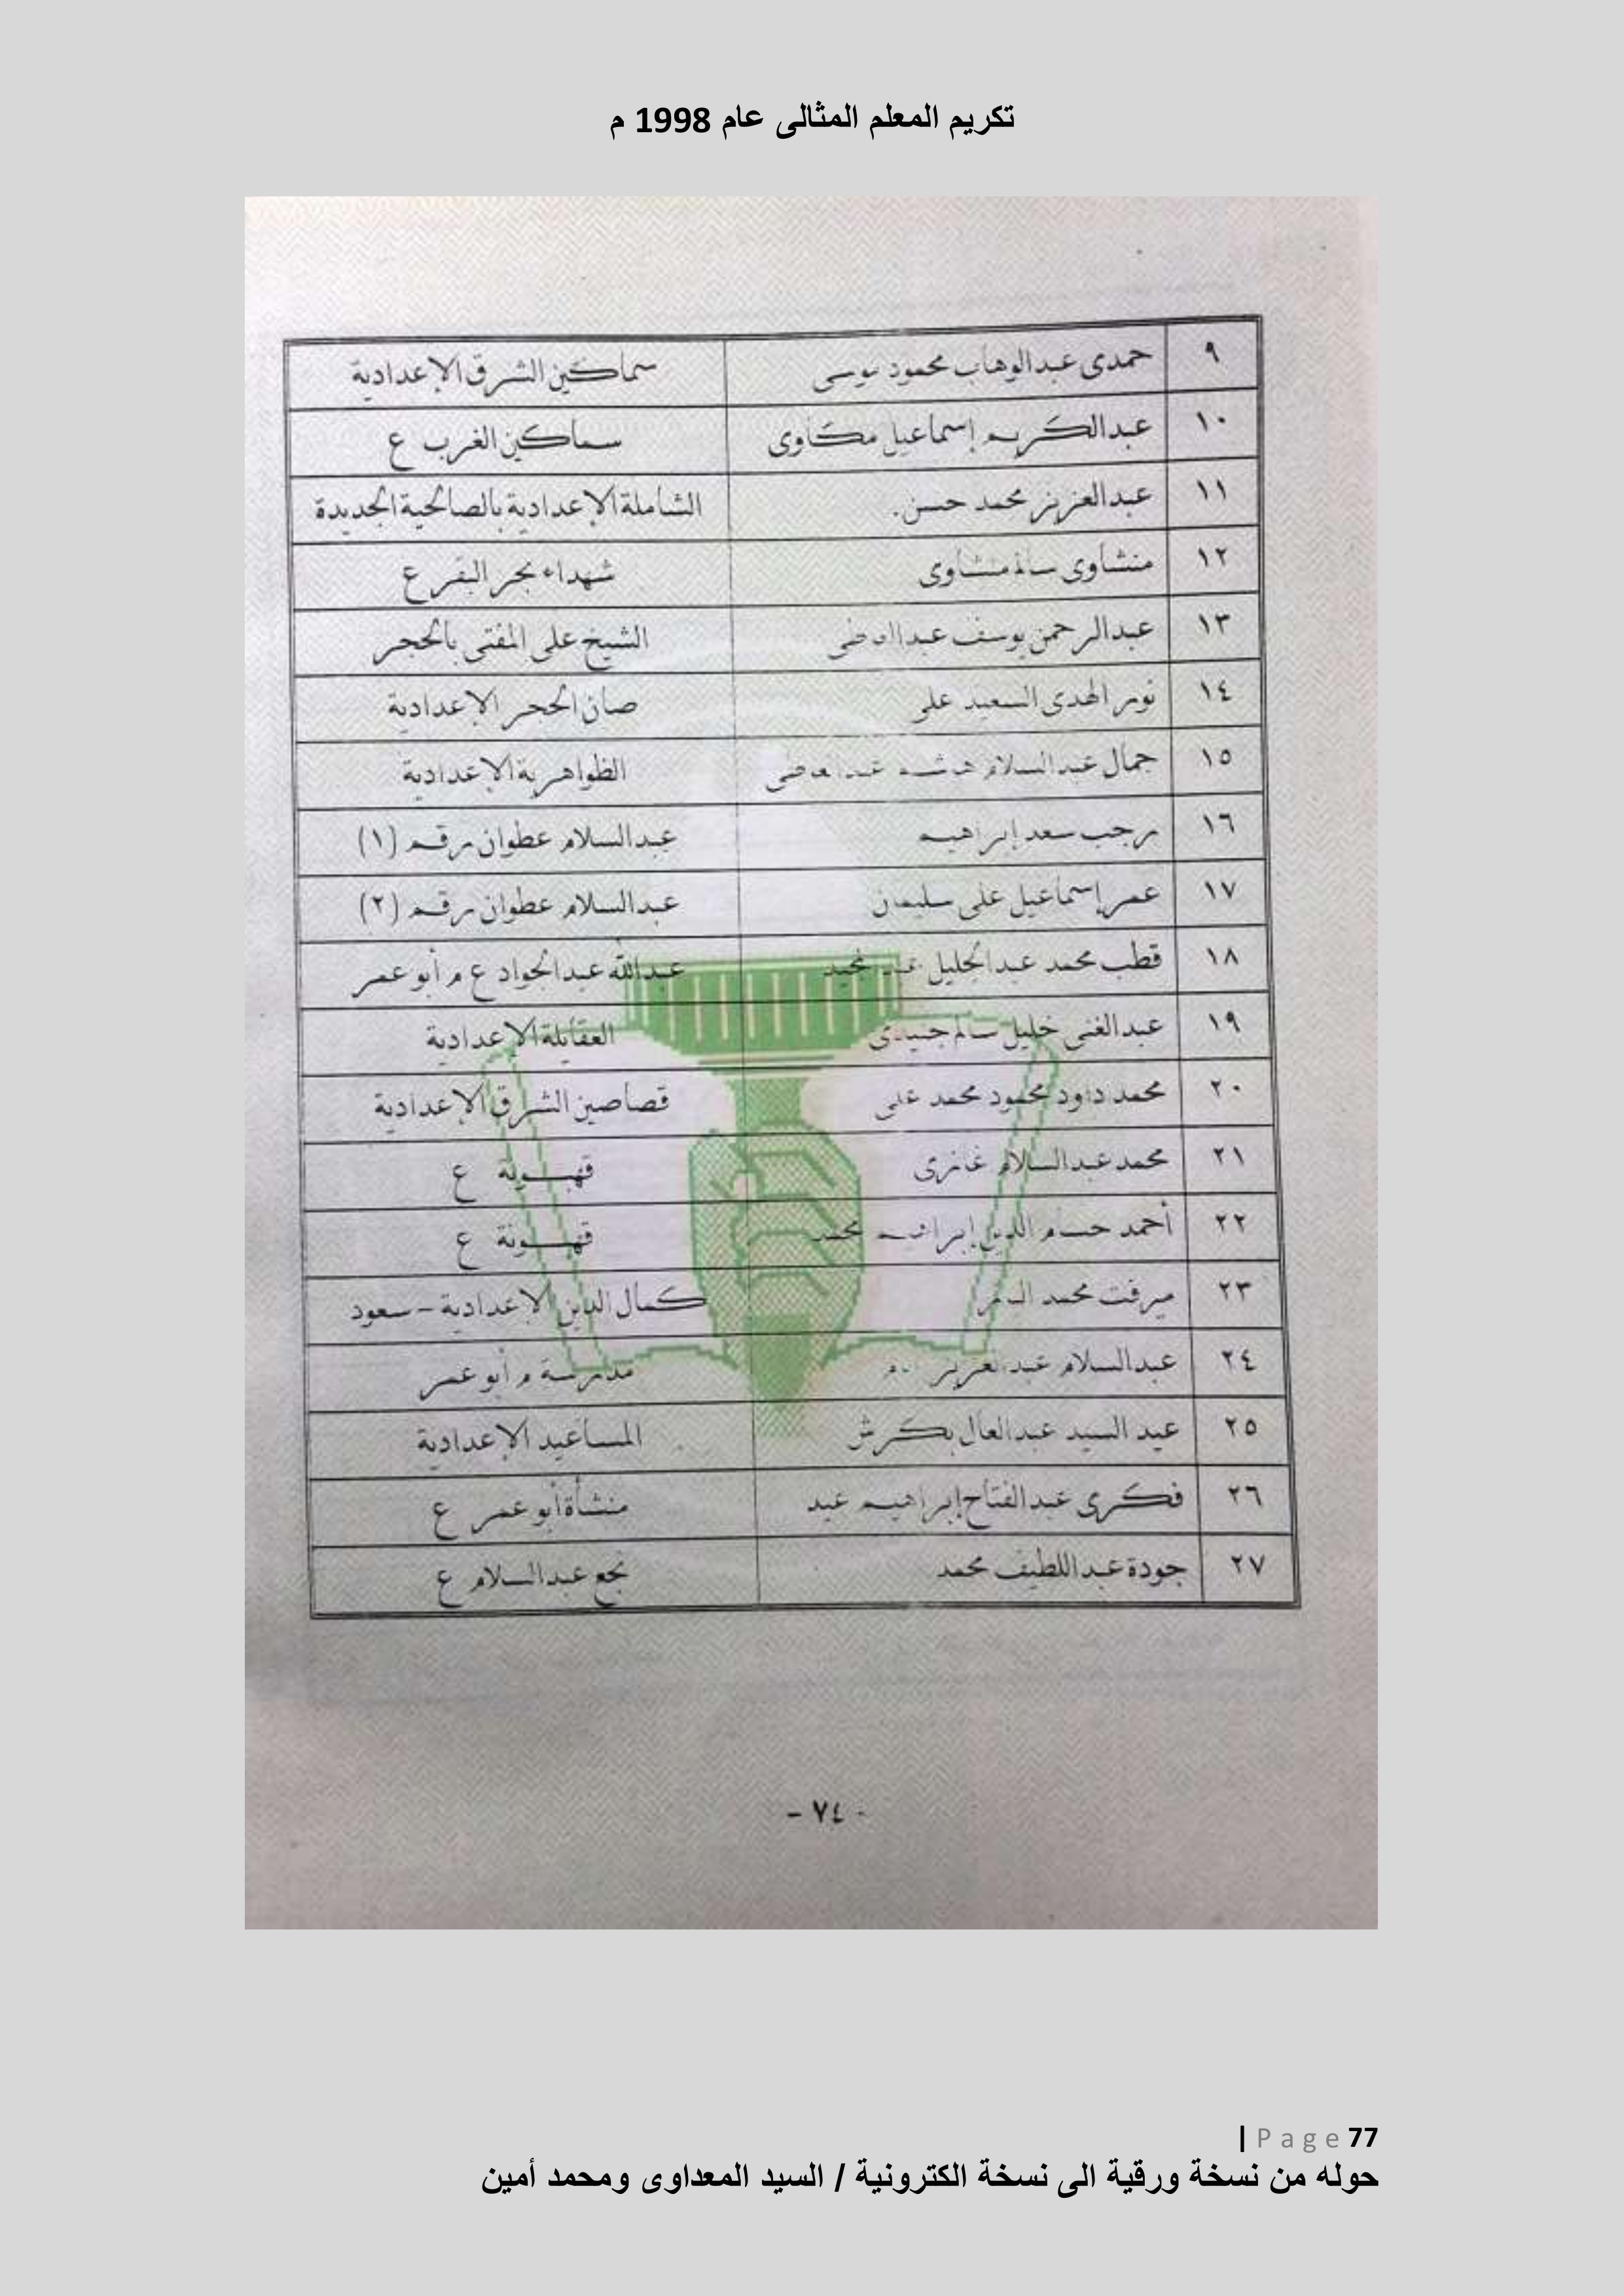 تكريم المعلم المثالى عام 1998 م
٩ حمدى عبدالوهاب محمود موسى سماكين الشرق الإعدادية
١٠ عبدالكريم إسماعيل مكاوى سماكين الغرب ع
١١ عبدالعزيز محمد حسن. الشاملة الإعدادية بالصالحية الجديدة
١٢ منشاوى سالم منشاوى شهداء بحر البقر ع
١٣ عبدالرحمن يوسف الشيخ على المفتى بالحجر
١٤ نور الهدى السعيد على صان الحجر الإعدادية
١٥ جمال عبدالسلام الظواهرية الإعدادية
١٦ رجب سعد إبراهيم عبدالسلام عطوان رقم (١)
١٧ عمر إسماعيل على سليمان عبدالسلام عطوان رقم (٢)
١٨ قطب محمد عبدالجليل عبدالله عبدالجواد ع م أبو عمر
١٩ عبدالغنى خليل سالم العقايلة الإعدادية
٢٠ محمد داود محمود محمد على قصاصين الشرق الإعدادية
٢١ محمد عبدالسلام غازى قهبونة ع
٢٢ أحمد حسام الدين إبراهيم محمد قهبونة ع
٢٣ ميرفت محمد كمال الدين الإعدادية - سعود
٢٤ عبدالسلام عبدالعزيز مدرسة م أبو عمر
٢٥ عيد السيد عبدالعال بكرش المساعيد الإعدادية
٢٦ فكرى عبدالفتاح إبراهيم عيد منشأة أبو عمر ع
٢٧ جودة عبداللطيف محمد نجع عبدالسلام ع
- ٧٤ -
| Page 77
حوله من نسخة ورقية الى نسخة الكترونية / السيد المعداوى ومحمد أمين